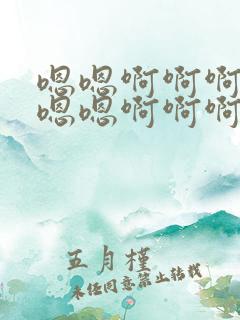 嗯嗯啊啊啊
嗯嗯啊啊啊
五月槿
未经同意禁止转载